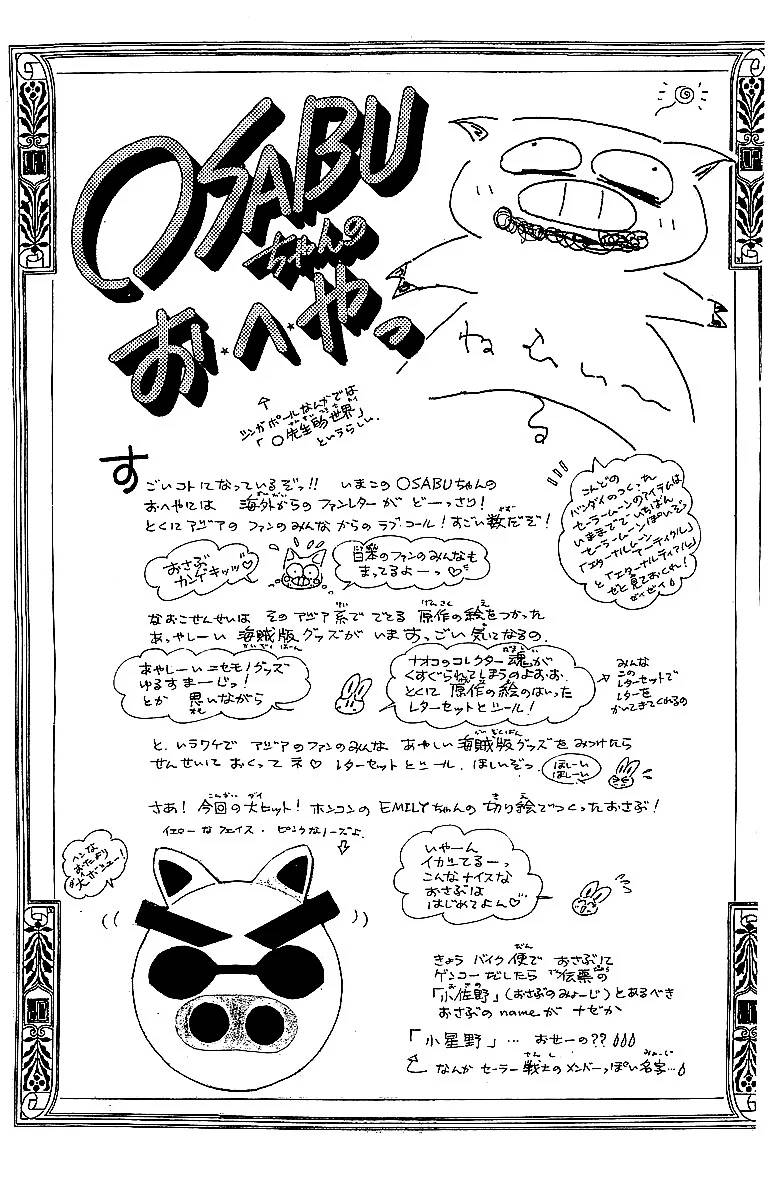 OSABU
ちゃんの
お・へ・やっ
ねむいーー
シンガポールなんかでは
「○先生的世界」
というらしい
すごいコトになっているぞっ!! いまこのOSABUちゃんの
おへやには 海外からのファンレターが どーっさり!
とくにアジアの ファンのみんな からの ラブコール! すごい数だぞ!
こんどの
バンダイのつくった
セーラームーンのアイテムは
いままでで いちばん
セーラームーンぽいぞ
「エターナルムーン
アーティクル」
と「エターナルティアル」
ぜひ見ておくれ!
ゼイゼイ
おさぶ
カンゲキッッ♡
日本のファンのみんなも
まってるよーっ♡
なおこせんせいは その アジア系で でてる 原作の絵をつかった
あっやしーい 海賊版グッズが いま すっごい 気になるの.
あやしーい ニセモノグッズ
ゆるすまーじっ!
とか 思いながら
ナオコのコレクター魂が
くすぐられてしまうのよおお.
とくに 原作の絵のはいった
レターセットとシール!
みんな
この
レターセットで
レターを
かいてきてくれるの
と、いうワケで アジアのファンのみんな あやしい 海賊版グッズを みつけたら
せんせいに おくって ネ♡ レターセットとシール. ほしいぞっ
ほしーい
ほしーい
さあ! 今回の大ヒット! ホンコンの EMILYちゃんの 切り絵でつくったおさぶ!
イエローなフェイス・ピンクなノーズよ
ヘンな
おたより
大ボシュー!
いやーん
イカしてるーっ
こんなナイスな
おさぶは
はじめてよん♡
きょう バイク便で おさぶに
ゲンコーだしたら 伝票の
「小佐野」(おさぶのみょーじ)とあるべき
おさぶの name が ナゼか
「小星野」… おせーの??
なんか セーラー戦士のメンバーっぽい 名字…